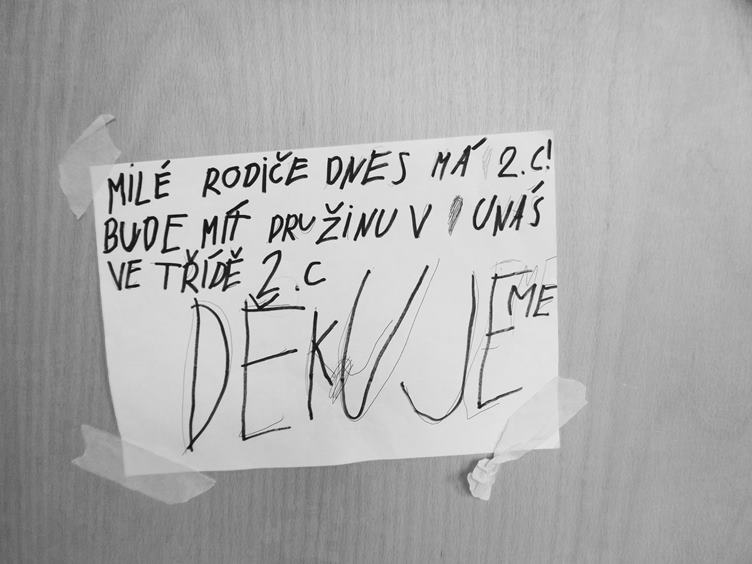 MILÉ RODIČE DNES MÁ 2.C!
BUDE MÍT DRUŽINU V UNÁS
VE TŘÍDĚ 2.C
DĚKUJEME